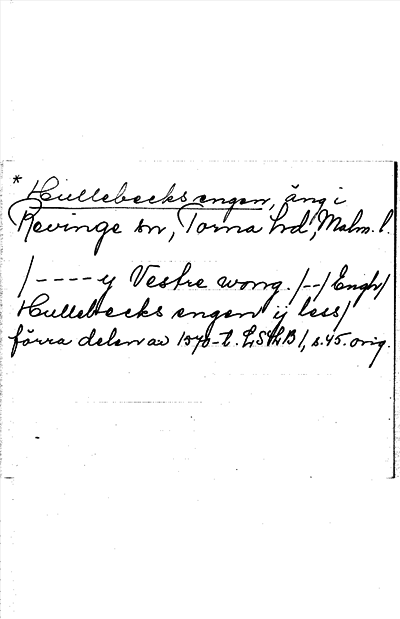 * Hullebecks engen, äng i
Revinge sn, Torna hd, Malm. l.
/---- y Vestre wong. /--/ Engh/
Hullebecks engen ij less/
förra delen av 1570-t. LSLB 1, s. 45. orig.